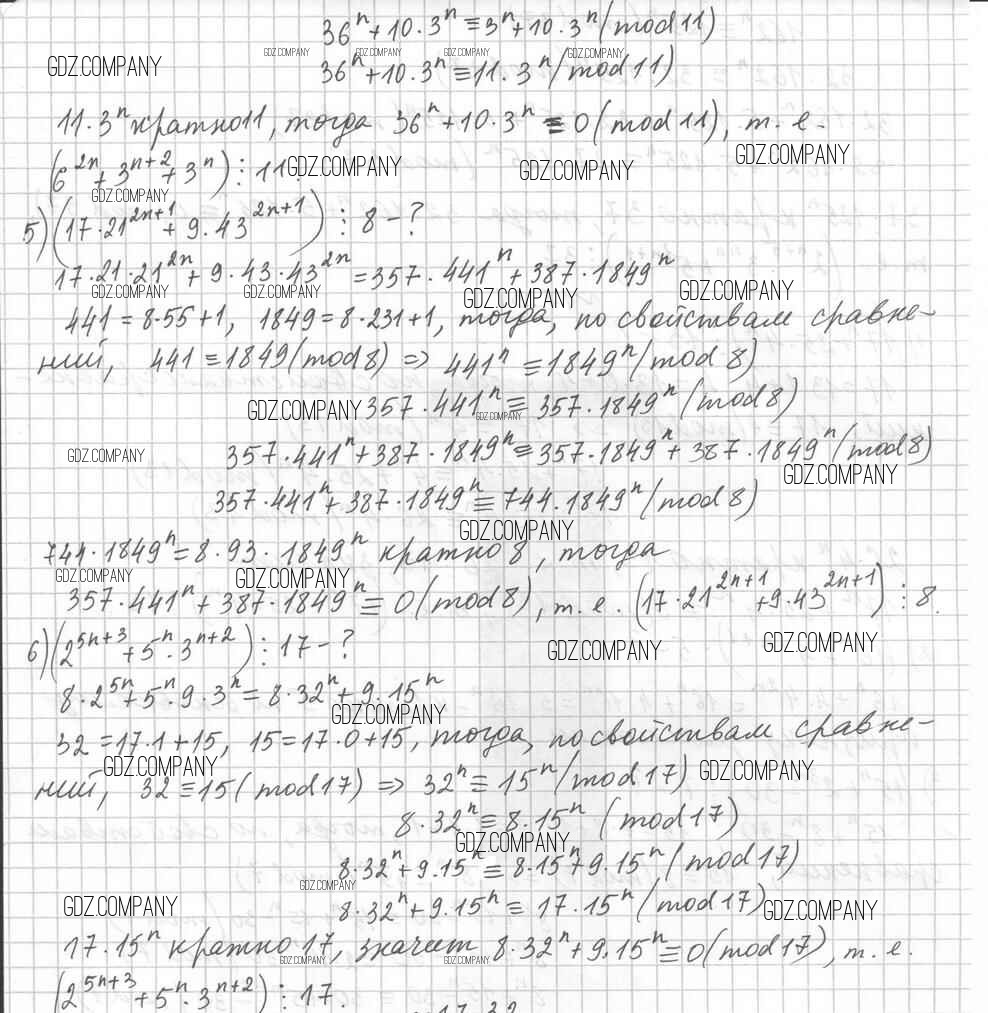 36ⁿ + 10·3ⁿ ≡ 3ⁿ + 10·3ⁿ (mod 11)
GDZ.COMPANY GDZ.COMPANY GDZ.COMPANY GDZ.COMPANY
GDZ.COMPANY
36ⁿ + 10·3ⁿ ≡ 11·3ⁿ (mod 11)
11·3ⁿ кратно 11, тогда 36ⁿ + 10·3ⁿ ≡ 0 (mod 11), т. е.
(6²ⁿ + 3ⁿ⁺² + 3ⁿ) ⋮ 11.
GDZ.COMPANY GDZ.COMPANY GDZ.COMPANY
GDZ.COMPANY
5) (17·21²ⁿ⁺¹ + 9·43²ⁿ⁺¹) ⋮ 8 - ?
17·21·21²ⁿ + 9·43·43²ⁿ = 357·441ⁿ + 387·1849ⁿ
GDZ.COMPANY GDZ.COMPANY GDZ.COMPANY GDZ.COMPANY
441 = 8·55+1, 1849 = 8·231+1, тогда, по свойствам сравне-
ний, 441 ≡ 1849 (mod 8) => 441ⁿ ≡ 1849ⁿ (mod 8)
GDZ.COMPANY 357·441ⁿ ≡ 357·1849ⁿ (mod 8)
GDZ.COMPANY
GDZ.COMPANY 357·441ⁿ + 387·1849ⁿ ≡ 357·1849ⁿ + 387·1849ⁿ (mod 8)
GDZ.COMPANY
357·441ⁿ + 387·1849ⁿ ≡ 744·1849ⁿ (mod 8)
GDZ.COMPANY
744·1849ⁿ = 8·93·1849ⁿ кратно 8, тогда
GDZ.COMPANY GDZ.COMPANY
357·441ⁿ + 387·1849ⁿ ≡ 0 (mod 8), т. е. (17·21²ⁿ⁺¹ + 9·43²ⁿ⁺¹) ⋮ 8.
6) (2⁵ⁿ⁺³ + 5ⁿ·3ⁿ⁺²) ⋮ 17 - ?
GDZ.COMPANY GDZ.COMPANY
8·2⁵ⁿ + 5ⁿ·9·3ⁿ = 8·32ⁿ + 9·15ⁿ
GDZ.COMPANY
32 = 17·1+15, 15 = 17·0+15, тогда, по свойствам сравне-
GDZ.COMPANY GDZ.COMPANY
ний, 32 ≡ 15 (mod 17) => 32ⁿ ≡ 15ⁿ (mod 17)
8·32ⁿ ≡ 8·15ⁿ (mod 17)
GDZ.COMPANY
8·32ⁿ + 9·15ⁿ ≡ 8·15ⁿ + 9·15ⁿ (mod 17)
GDZ.COMPANY
GDZ.COMPANY 8·32ⁿ + 9·15ⁿ ≡ 17·15ⁿ (mod 17) GDZ.COMPANY
17·15ⁿ кратно 17, значит 8·32ⁿ + 9·15ⁿ ≡ 0 (mod 17), т. е.
GDZ.COMPANY GDZ.COMPANY
(2⁵ⁿ⁺³ + 5ⁿ·3ⁿ⁺²) ⋮ 17.